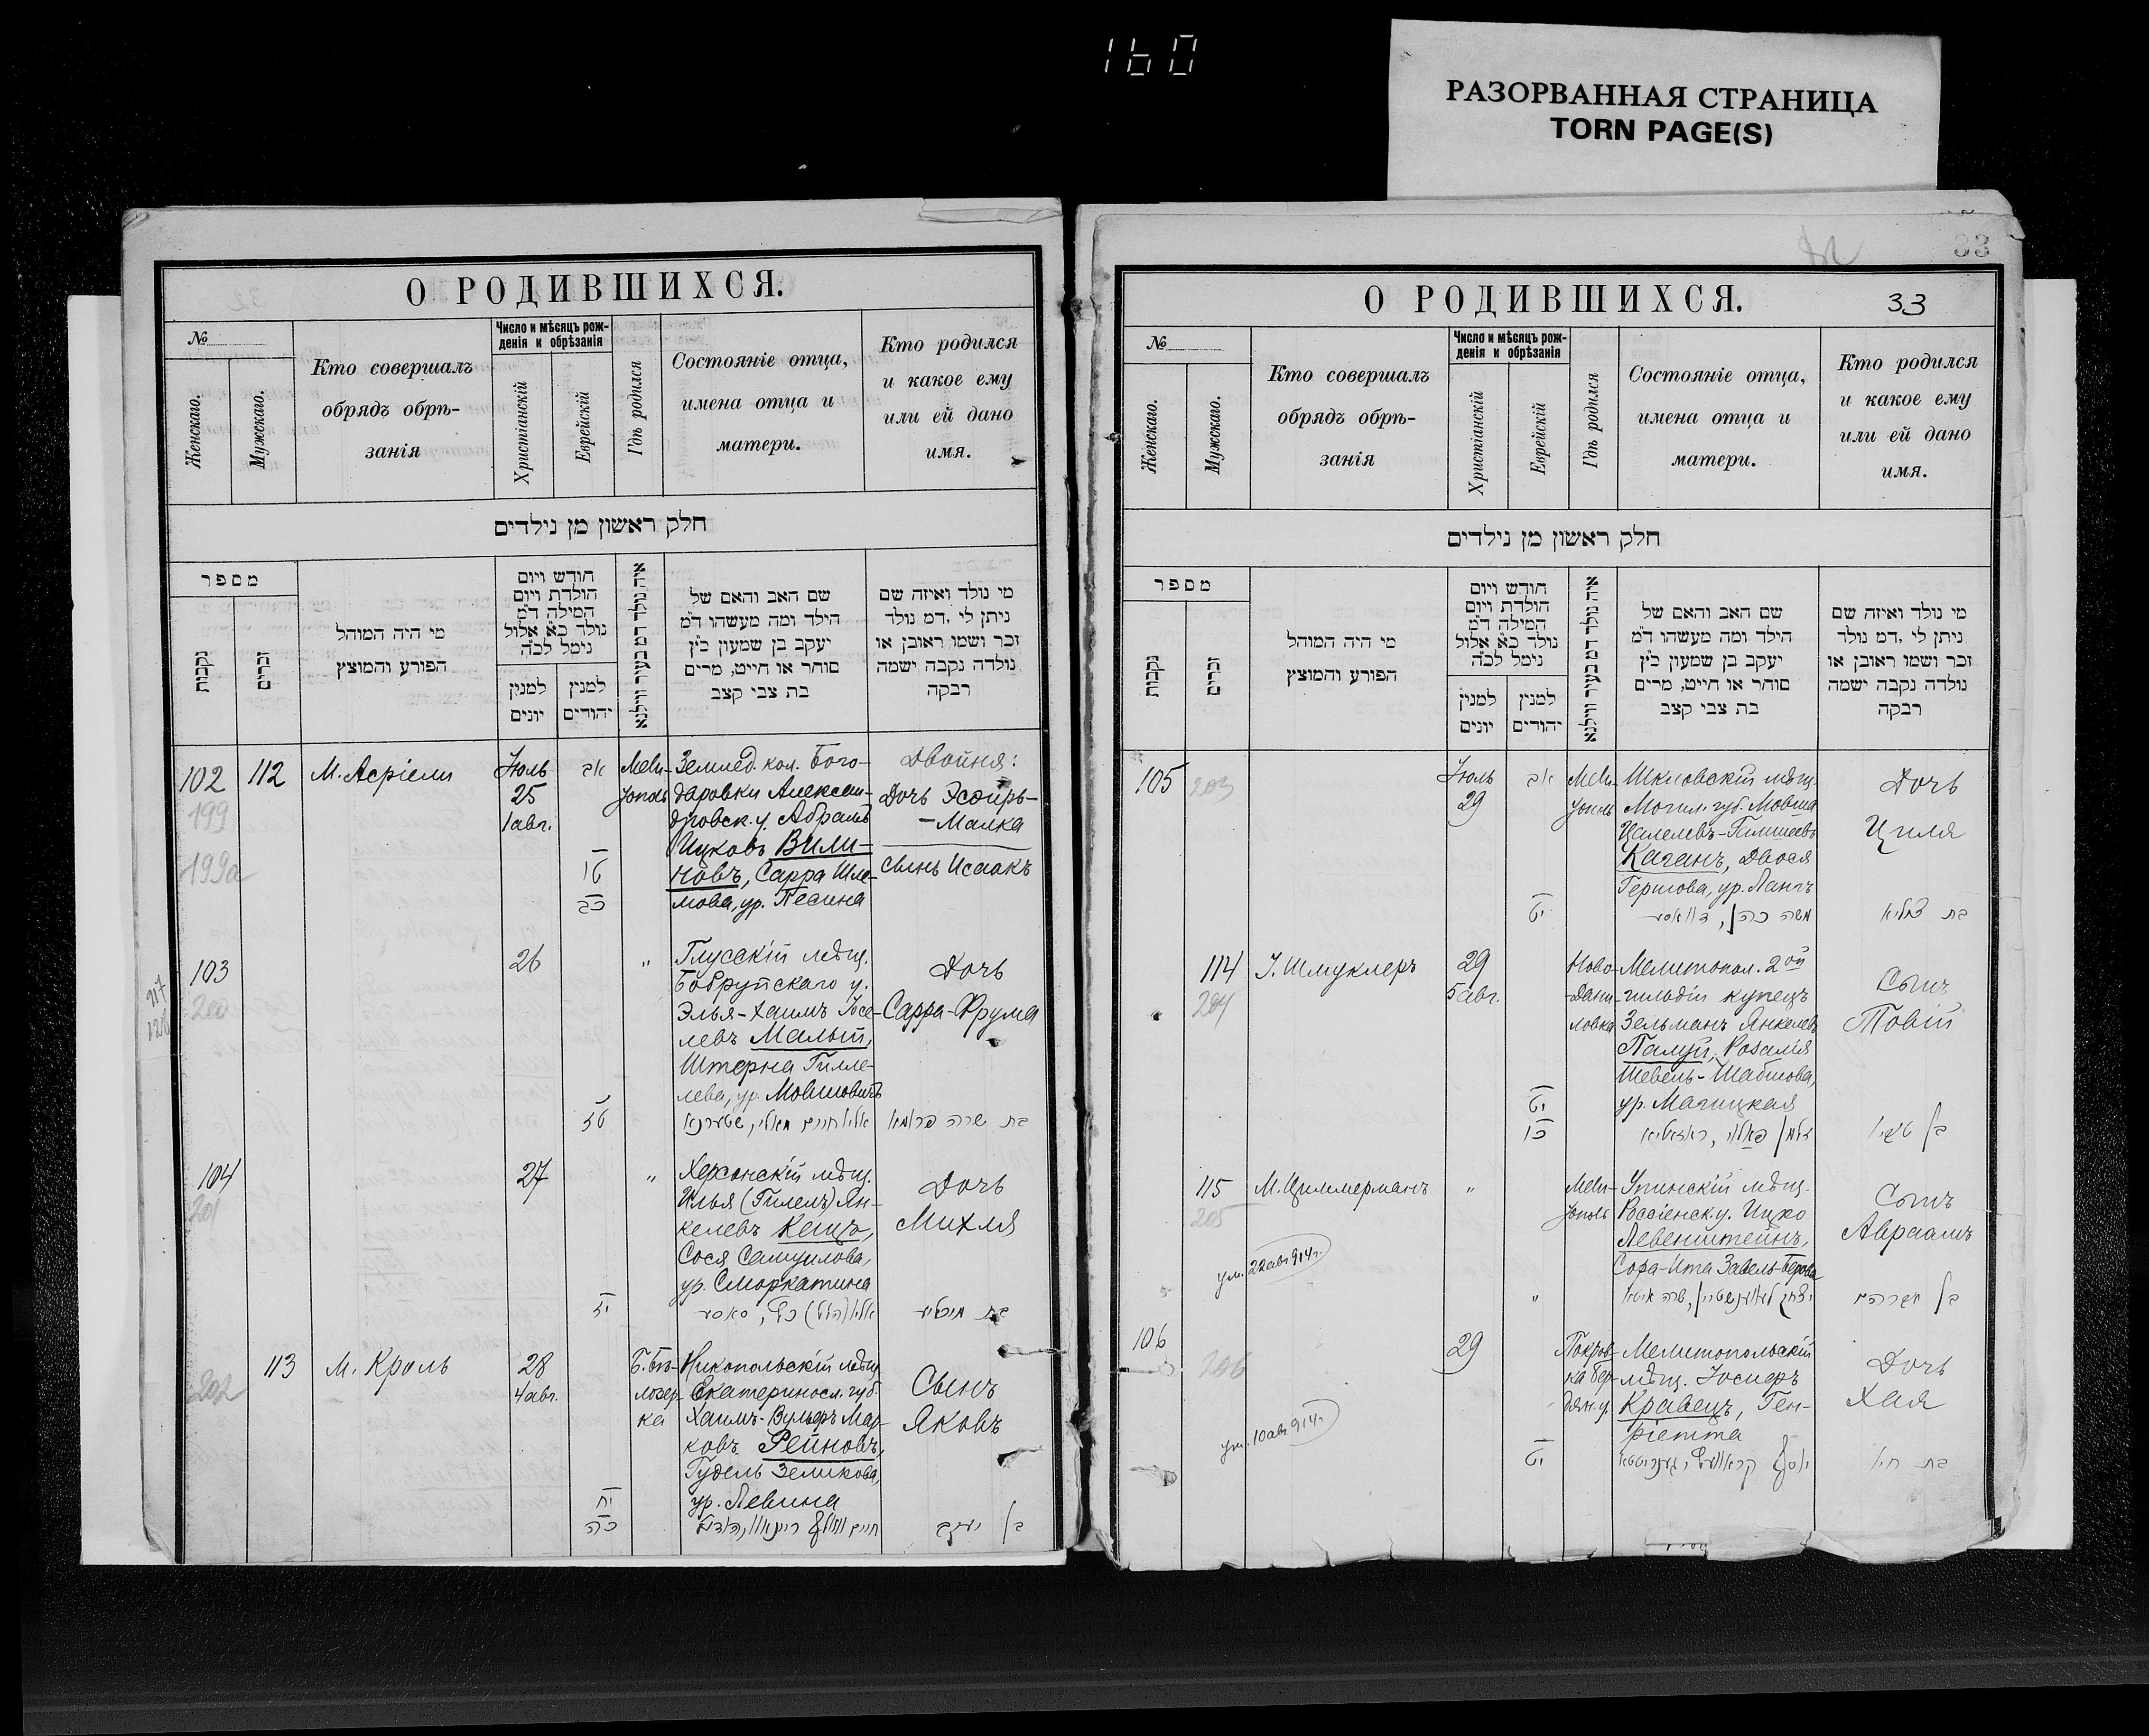 160
РАЗОРВАННАЯ СТРАНИЦА
TORN PAGE(S)
О РОДИВШИХСЯ.
№
Женскаго.
Мужскаго.
Кто совершалъ
обрядъ обрѣ-
занія
Число и мѣсяцъ рож-
денія и обрѣзанія
Христіанскій
Еврейскій
Гдѣ родился
Состояніе отца,
имена отца и
матери.
Кто родился
и какое ему
или ей дано
имя.
חלק ראשון מן נילדים
מספר
נקבות
זכרים
מי היה המוהל
הפורע והמוצץ
חודש ויום
הולדת ויום
המילה ד״מ
נולד כ״א אלול
נימל לכ״ה
למנין
יונים
למנין
יהודים
איה נולד דמ בעיר ווילנא
שם האב והאם של
הילד ומה מעשהו ד״מ
יעקב בן שמעון כ״ץ
סוחר או חייט, מרים
בת צבי קצב
מי נולד ואיזה שם
ניתן לי, דמ נולד
זכר ושמו ראובן או
נולדה נקבה ישמה
רבקה
102
199
199а
112
М. Асріели
Іюль
25
1 авг.
אב
טו
כב
Мели-
тополь
Землед. кол. Бого-
даровки Алексан-
дровск. у. Абрамъ
Ицковъ Вили-
новъ, Сарра Шле-
мова, ур. Песина
Двойня:
Дочь Эсѳирь-
-Малка
Сынъ Исаакъ
103
200
26
טז
"
Глусскій мѣщ.
Бобруйскаго у.
Элья-Хаимъ Іосе-
левъ Малый,
Штерна Гилле-
лева, ур. Мовшовичъ
Дочь
Сарра-Фрума
בת שרה פרומא
104
201
27
יז
"
Херсонскій мѣщ.
Илья (Гилелъ) Ян-
келевъ Кецъ,
Сося Самуилова,
ур. Сморкатина
Дочь
Михля
202
113
М. Кроль
28
4 авг.
יח
כה
Б. Бѣ-
лозер-
ка
Никопольскій мѣщ.
Екатериносл. губ.
Хаимъ-Вульфъ Мар-
ковъ Рейновъ,
Гудель Зеликова,
ур. Левина
Сынъ
Яковъ
בן יעקב
О РОДИВШИХСЯ.
33
33
№
Женскаго.
Мужскаго.
Кто совершалъ
обрядъ обрѣ-
занія
Число и мѣсяцъ рож-
денія и обрѣзанія
Христіанскій
Еврейскій
Гдѣ родился
Состояніе отца,
имена отца и
матери.
Кто родился
и какое ему
или ей дано
имя.
חלק ראשון מן נילדים
מספר
נקבות
זכרים
מי היה המוהל
הפורע והמוצץ
חודש ויום
הולדת ויום
המילה ד״מ
נולד כ״א אלול
נימל לכ״ה
למנין
יונים
למנין
יהודים
איה נולד דמ בעיר ווילנא
שם האב והאם של
הילד ומה מעשהו ד״מ
יעקב בן שמעון כ״ץ
סוחר או חייט, מרים
בת צבי קצב
מי נולד ואיזה שם
ניתן לי, דמ נולד
זכר ושמו ראובן או
נולדה נקבה ישמה
רבקה
105
203
Іюль
29
אב
יט
Мели-
тополь
Шкловскій мѣщ.
Могил. губ. Мовша
Каганъ, Двося
Гершова, ур.
משה כהן
Дочь
Циля
בת צליא
114
204
І. Шмуклеръ
29
5 авг.
יט
כו
Ново-
Дани-
ловка
Мелитопол. 2ой
гильдіи купецъ
Зельманъ Янкелевъ
Палуй, Розалія
Шевель-Шабшова,
ур. Магицкая
Сынъ
Товій
בן טביא
115
205
М. Циммерманъ
"
"
ум. 22 авг 914 г.
Мели-
тополь
Упинскій мѣщ.
Россіенск. у. Ицко
Левенштейнъ,
Сора-Ита Завель-Берова
Сынъ
Авраамъ
בן אברהם
106
206
29
יט
ум. 10 авг 914 г.
Покров-
ка Бер-
дян. у.
Мелитопольскій
мѣщ. Іосифъ
Кравецъ, Ген-
ріетта
Дочь
Хая
בת חיא